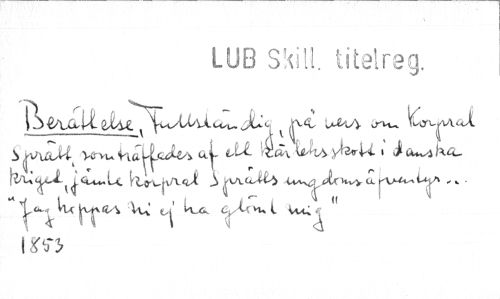 LUB Skill. titelreg.
Berättelse, Fullständig, på vers om Korpral
Sprätt, som träffades af ett kärleksskott i danska
kriget, jämte korpral Sprätts ungdomsäfventyr...
"Jag hoppas ni ej ha glömt mig"
1853